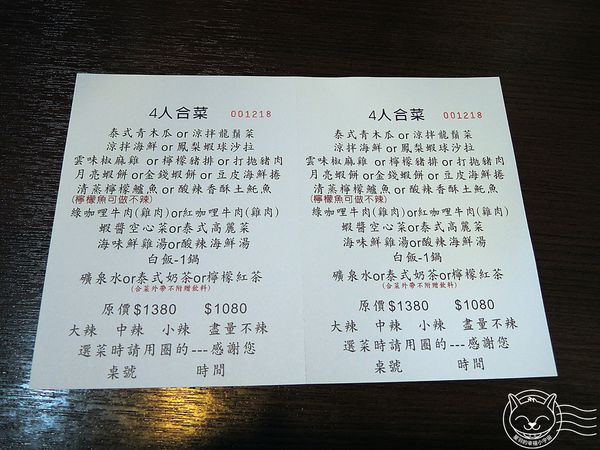 4人合菜 001218
泰式青木瓜 or 涼拌龍鬚菜
涼拌海鮮 or 鳳梨蝦球沙拉
雲味椒麻雞 or 檸檬豬排 or 打拋豬肉
月亮蝦餅 or 金錢蝦餅 or 豆皮海鮮捲
清蒸檸檬鱸魚 or 酸辣香酥土魠魚
(檸檬魚可做不辣)
綠咖哩牛肉(雞肉)or紅咖哩牛肉(雞肉)
蝦醬空心菜or泰式高麗菜
海味鮮雞湯or酸辣海鮮湯
白飯-1鍋
礦泉水or泰式奶茶or檸檬紅茶
(合菜外帶不附贈飲料)
原價$1380 $1080
大辣 中辣 小辣 盡量不辣
選菜時請用圈的---感謝您
桌號 時間
4人合菜 001218
泰式青木瓜 or 涼拌龍鬚菜
涼拌海鮮 or 鳳梨蝦球沙拉
雲味椒麻雞 or 檸檬豬排 or 打拋豬肉
月亮蝦餅 or 金錢蝦餅 or 豆皮海鮮捲
清蒸檸檬鱸魚 or 酸辣香酥土魠魚
(檸檬魚可做不辣)
綠咖哩牛肉(雞肉)or紅咖哩牛肉(雞肉)
蝦醬空心菜or泰式高麗菜
海味鮮雞湯or酸辣海鮮湯
白飯-1鍋
礦泉水or泰式奶茶or檸檬紅茶
(合菜外帶不附贈飲料)
原價$1380 $1080
大辣 中辣 小辣 盡量不辣
選菜時請用圈的---感謝您
桌號 時間